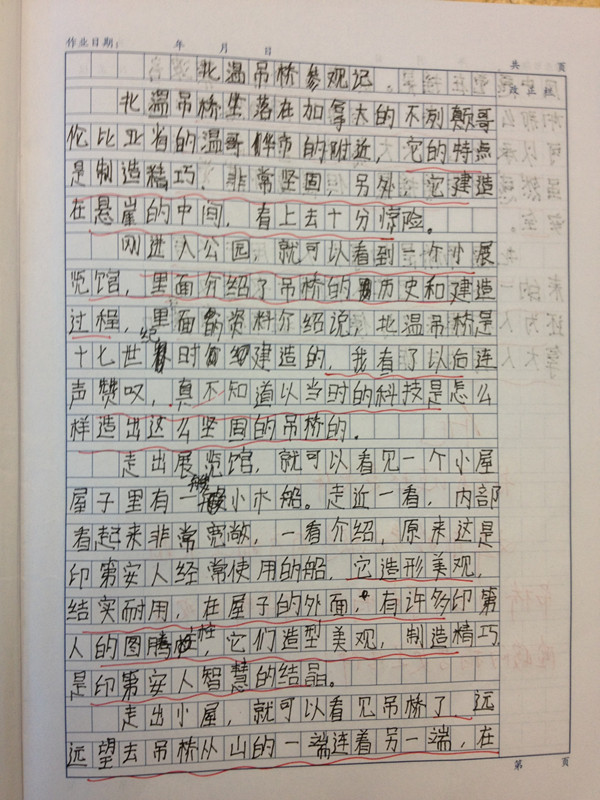 作业日期： 年 月 日
共 页
北温吊桥参观记
改正栏
北温吊桥坐落在加拿大的不列颠哥
伦比亚省的温哥华市的附近，它的特点
是制造精巧．非常坚固，另外，它建造
在悬崖的中间，看上去十分惊险。
刚进入公园，就可以看到一个小展
览馆，里面介绍了吊桥的历史和建造
过程，里面的资料介绍说，北温吊桥是
十七世纪时建造的，我看了以后连
声赞叹，真不知道以当时的科技是怎么
样造出这么坚固的吊桥的．
走出展览馆，就可以看见一个小屋
屋子里有一艘小木船。走近一看，内部
看起来非常宽敞，一看介绍，原来这是
印第安人经常使用的船，它造形美观，
结实耐用，在屋子的外面，有许多印第
人的图腾柱，它们造型美观，制造精巧
是印第安人智慧的结晶。
走出小屋，就可以看见吊桥了，远
远望去吊桥从山的一端连着另一端，在
第 页